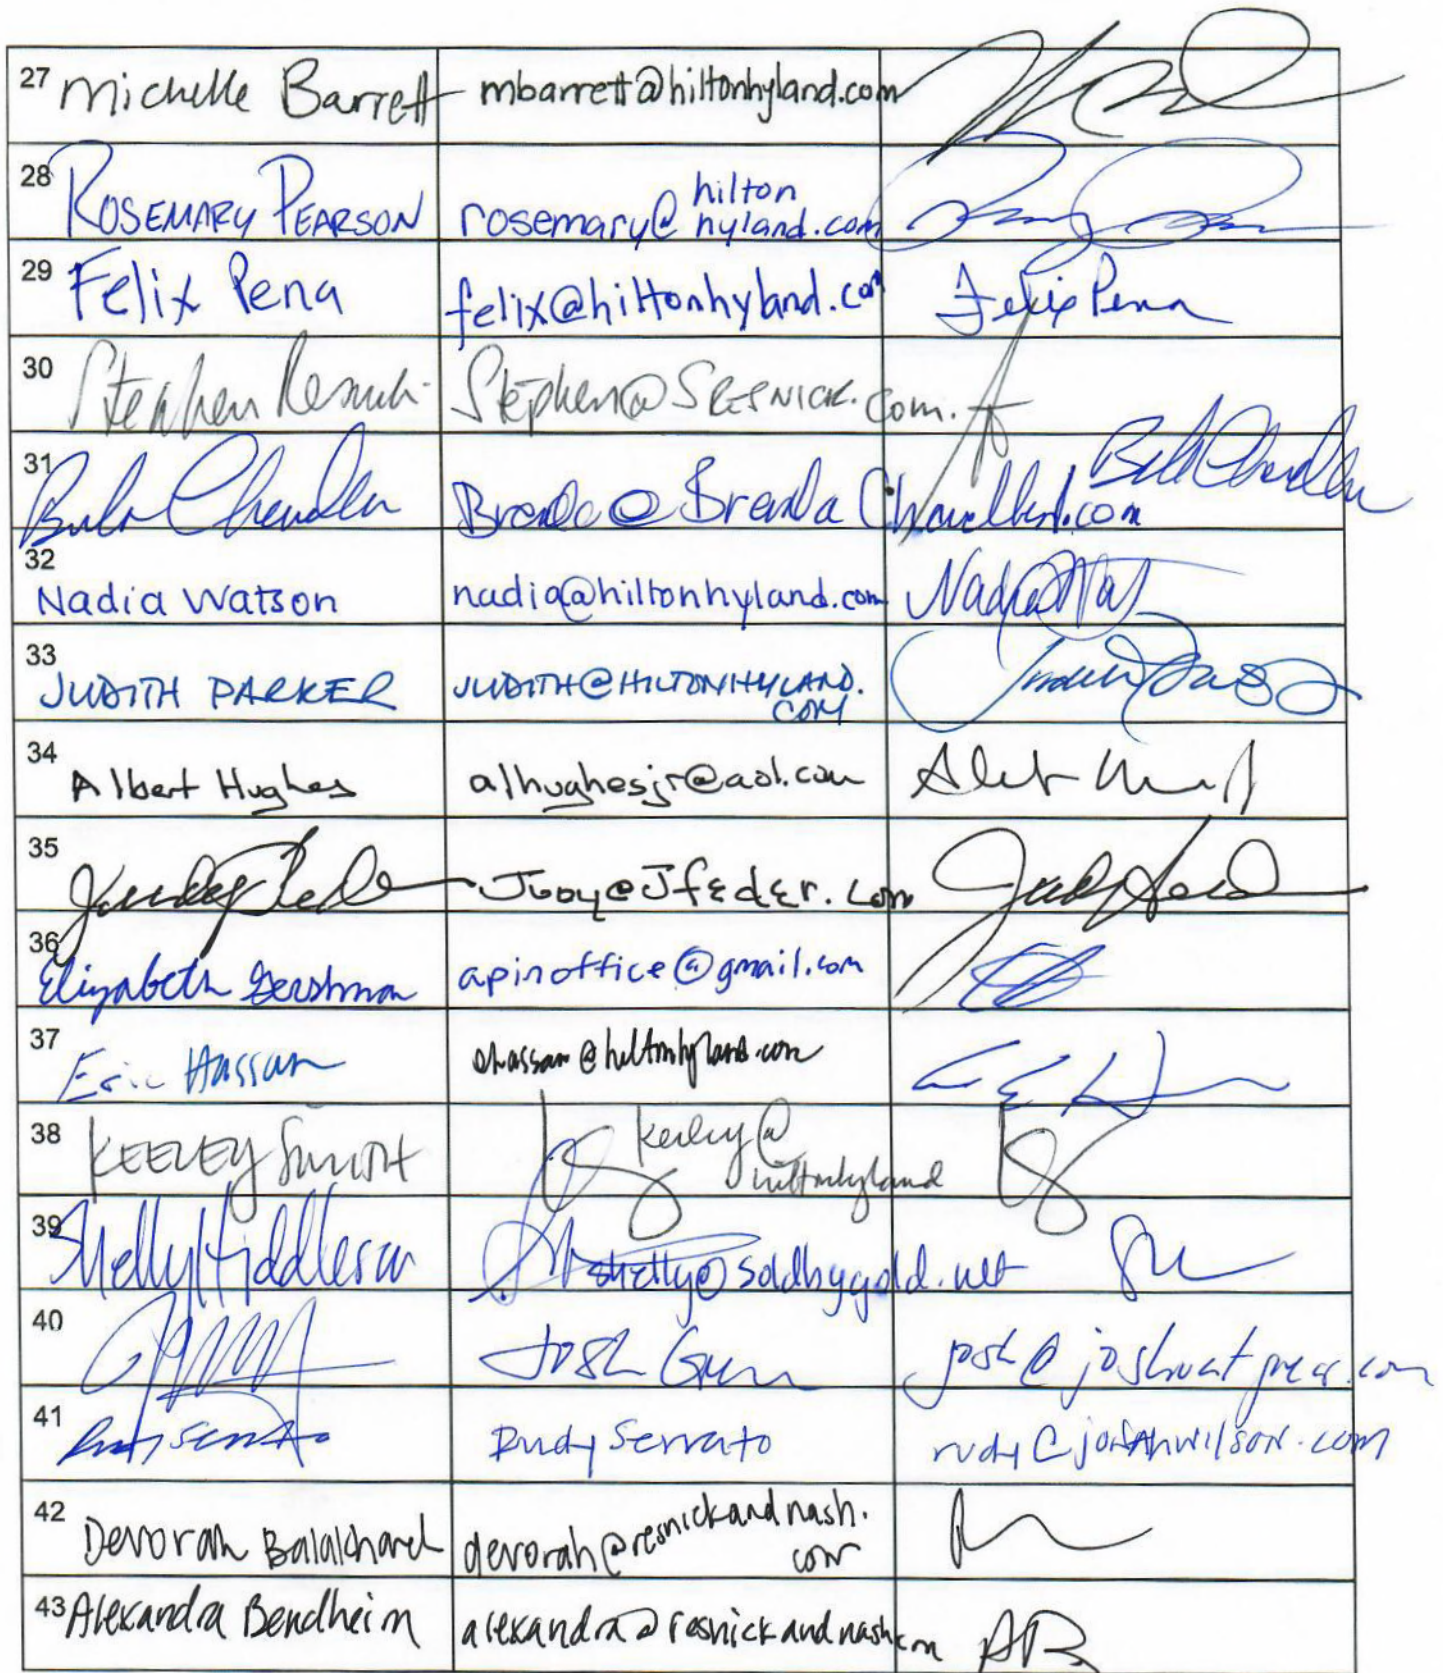 27 Michelle Barrett mbarrett@hiltonhyland.com
28 ROSEMARY PEARSON rosemary@hilton
hyland.com
29 Felix Pena felix@hiltonhyland.com Felix Pena
30 Stephen Resnick Stephen@SRESNICK.com.
31 Chandler Brenda@BrendaChandler.com Chandler
32 Nadia Watson nadia@hiltonhyland.com Nadia Wat
33 JUDITH PARKER JUDITH@HILTONHYLAND.
COM
34 Albert Hughes alhughesjr@aol.com
35 Judy@Jfeder.com
36 Elizabeth Gershman apinoffice@gmail.com
37 Eric Hassan ehassan@hiltonhyland.com
38 KEELEY SMITH Keeley@
hiltonhyland
39 Shelly Hiddleson shelly@soldbygold.net
40 Josh
41 Rudy Serrato rudy@jonahwilson.com
42 Devorah devorah@resnickandnash.
com
43 Alexandra Bendheim alexandra@resnickandnash.com AB